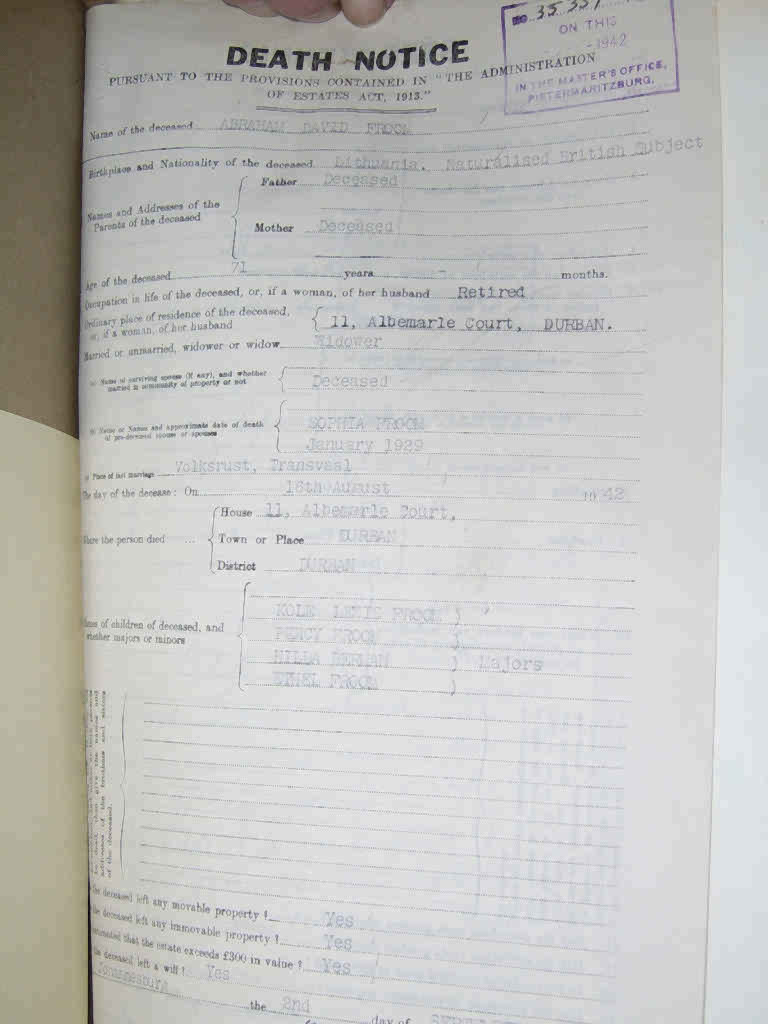 No. 35 351
ON THIS
-1942
IN THE MASTER'S OFFICE,
PIETERMARITZBURG.
DEATH NOTICE
PURSUANT TO THE PROVISIONS CONTAINED IN "THE ADMINISTRATION
OF ESTATES ACT, 1913."
Name of the deceased ABRAHAM DAVID FROOM
Birthplace and Nationality of the deceased Lithuania. Naturalised British Subject
Names and Addresses of the
Parents of the deceased
Father Deceased
Mother Deceased
Age of the deceased 71 years - months.
Occupation in life of the deceased, or, if a woman, of her husband Retired
Ordinary place of residence of the deceased,
or, if a woman, of her husband
11, Albemarle Court, DURBAN.
Married or unmarried, widower or widow Widower
(a) Name of surviving spouse (if any), and whether
married in community of property or not
Deceased
(b) Name or Names and approximate date of death
of pre-deceased spouse or spouses
SOPHIA FROOM
January 1929
(c) Place of last marriage Volksrust, Transvaal
The day of the decease: On 16th August 1942
Where the person died ...
House 11, Albemarle Court,
Town or Place DURBAN
District DURBAN
Names of children of deceased, and
whether majors or minors
KOLE LEWIS FROOM )
PERCY FROOM )
HILDA BERMAN ) Majors
ETHEL FROOM )
be dead, then give the names and
addresses of the brothers and sisters
of the deceased.
the deceased left any movable property? Yes
the deceased left any immovable property? Yes
estimated that the estate exceeds £300 in value? Yes
the deceased left a will? Yes
Johannesburg the 2nd day of